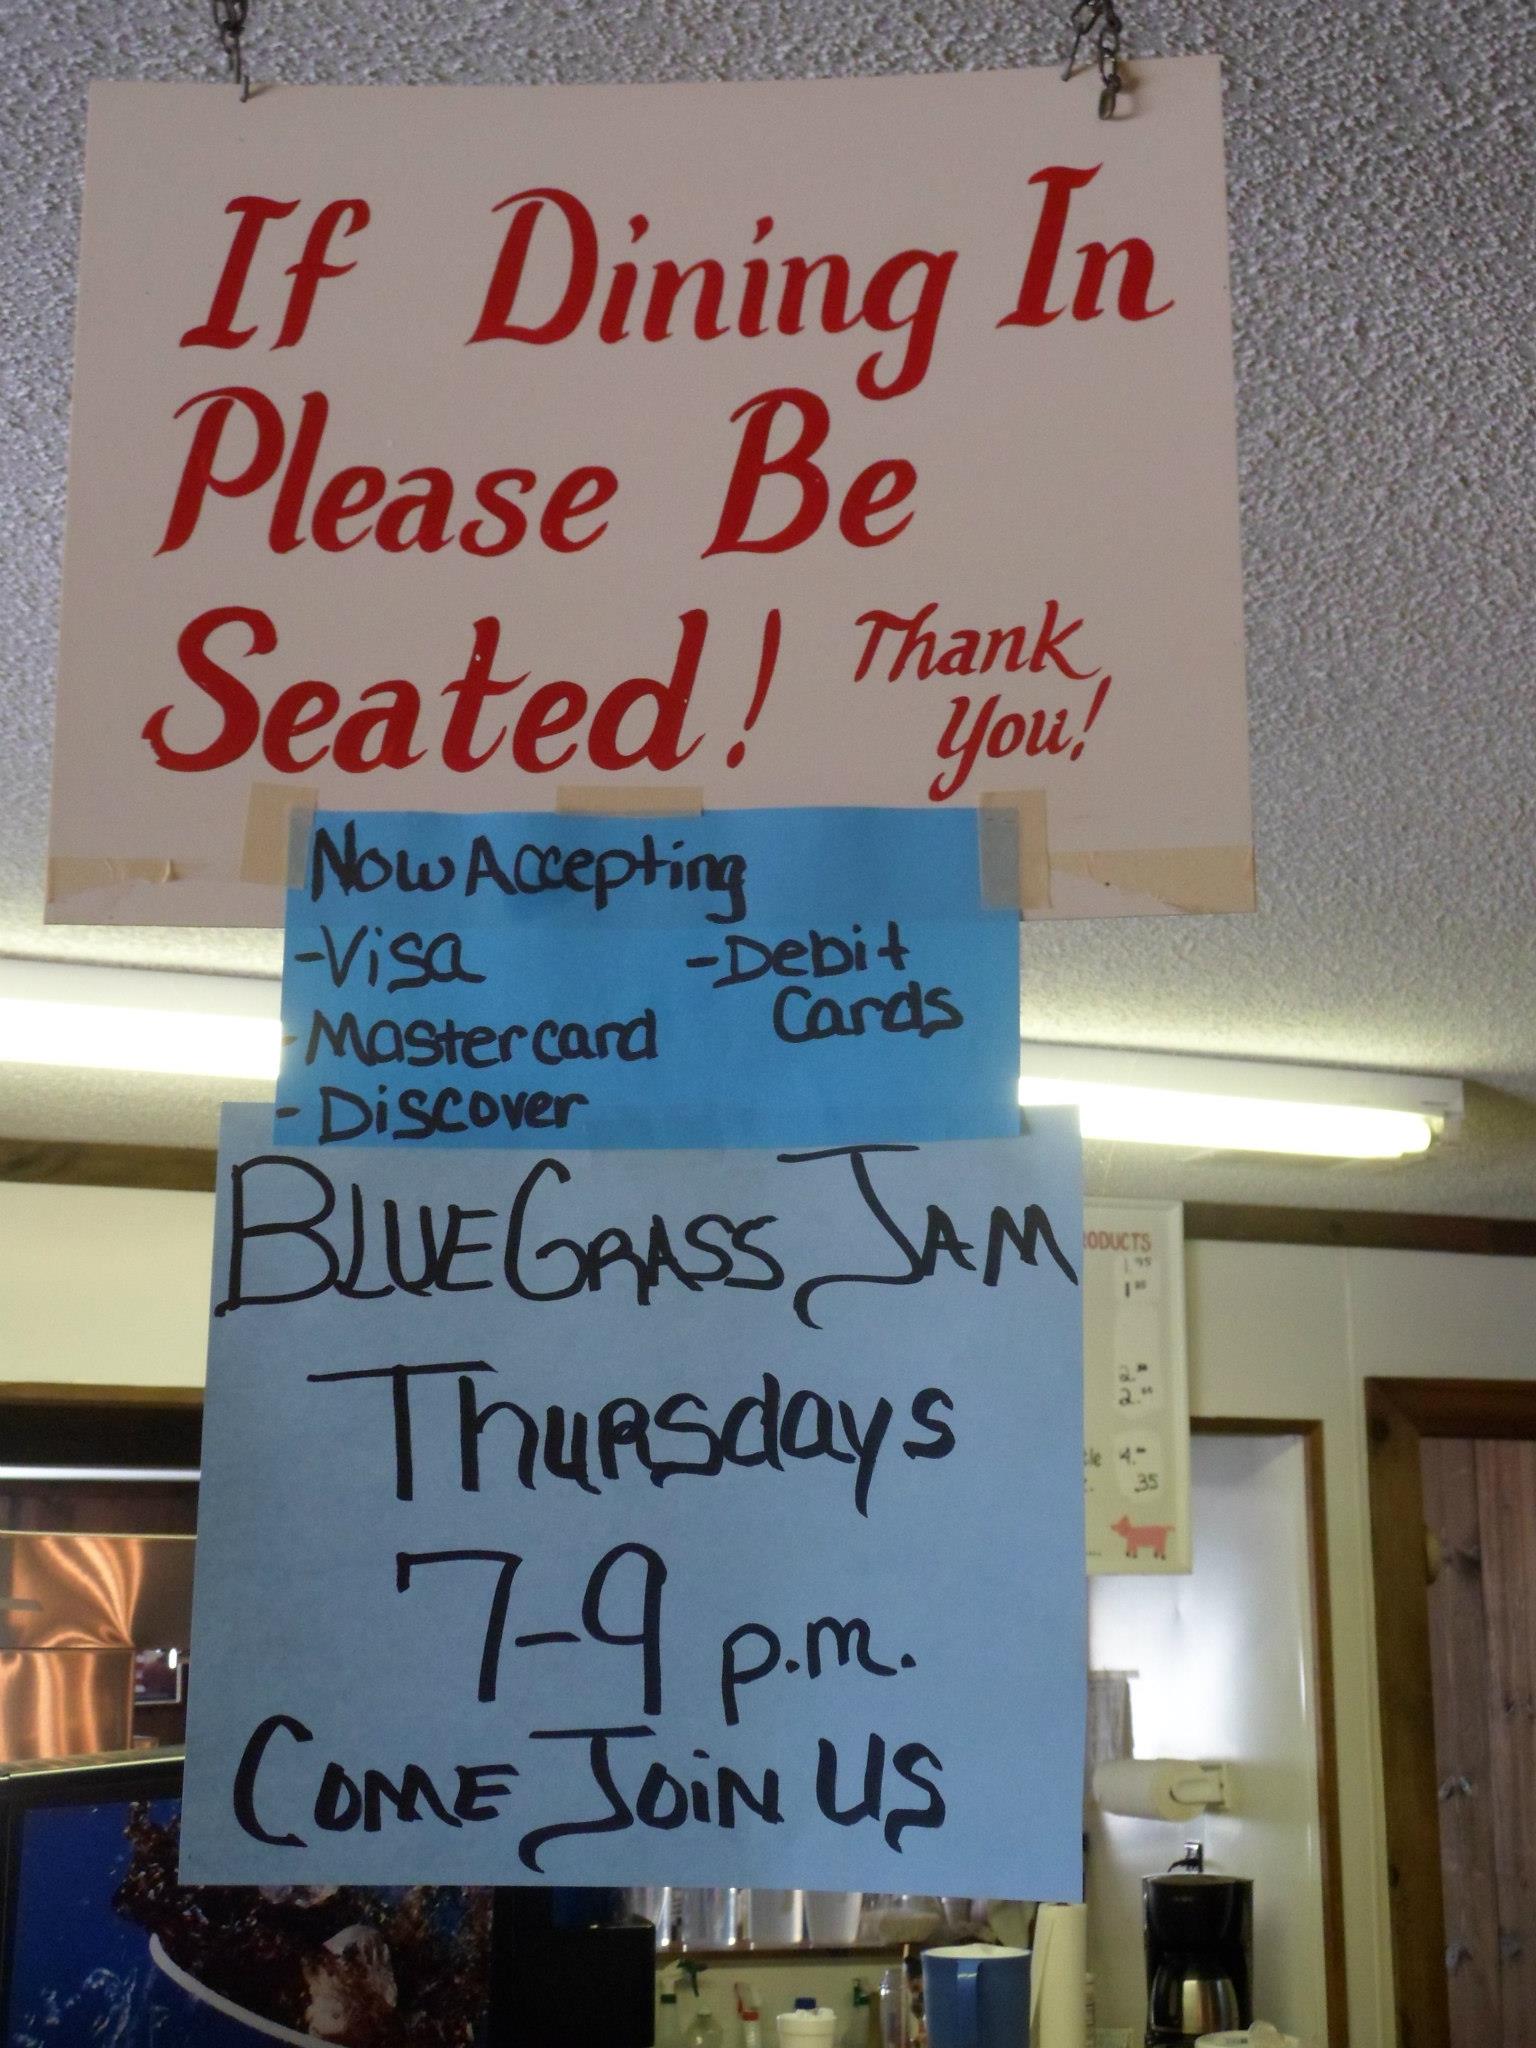 If Dining In
Please Be
Seated! Thank
You!
Now Accepting
-Visa
-Debit
Cards
-Mastercard
-Discover
BLUEGRASS JAM
Thursdays
7-9 p.m.
COME JOIN US
1.95
2.00
4.00
.35